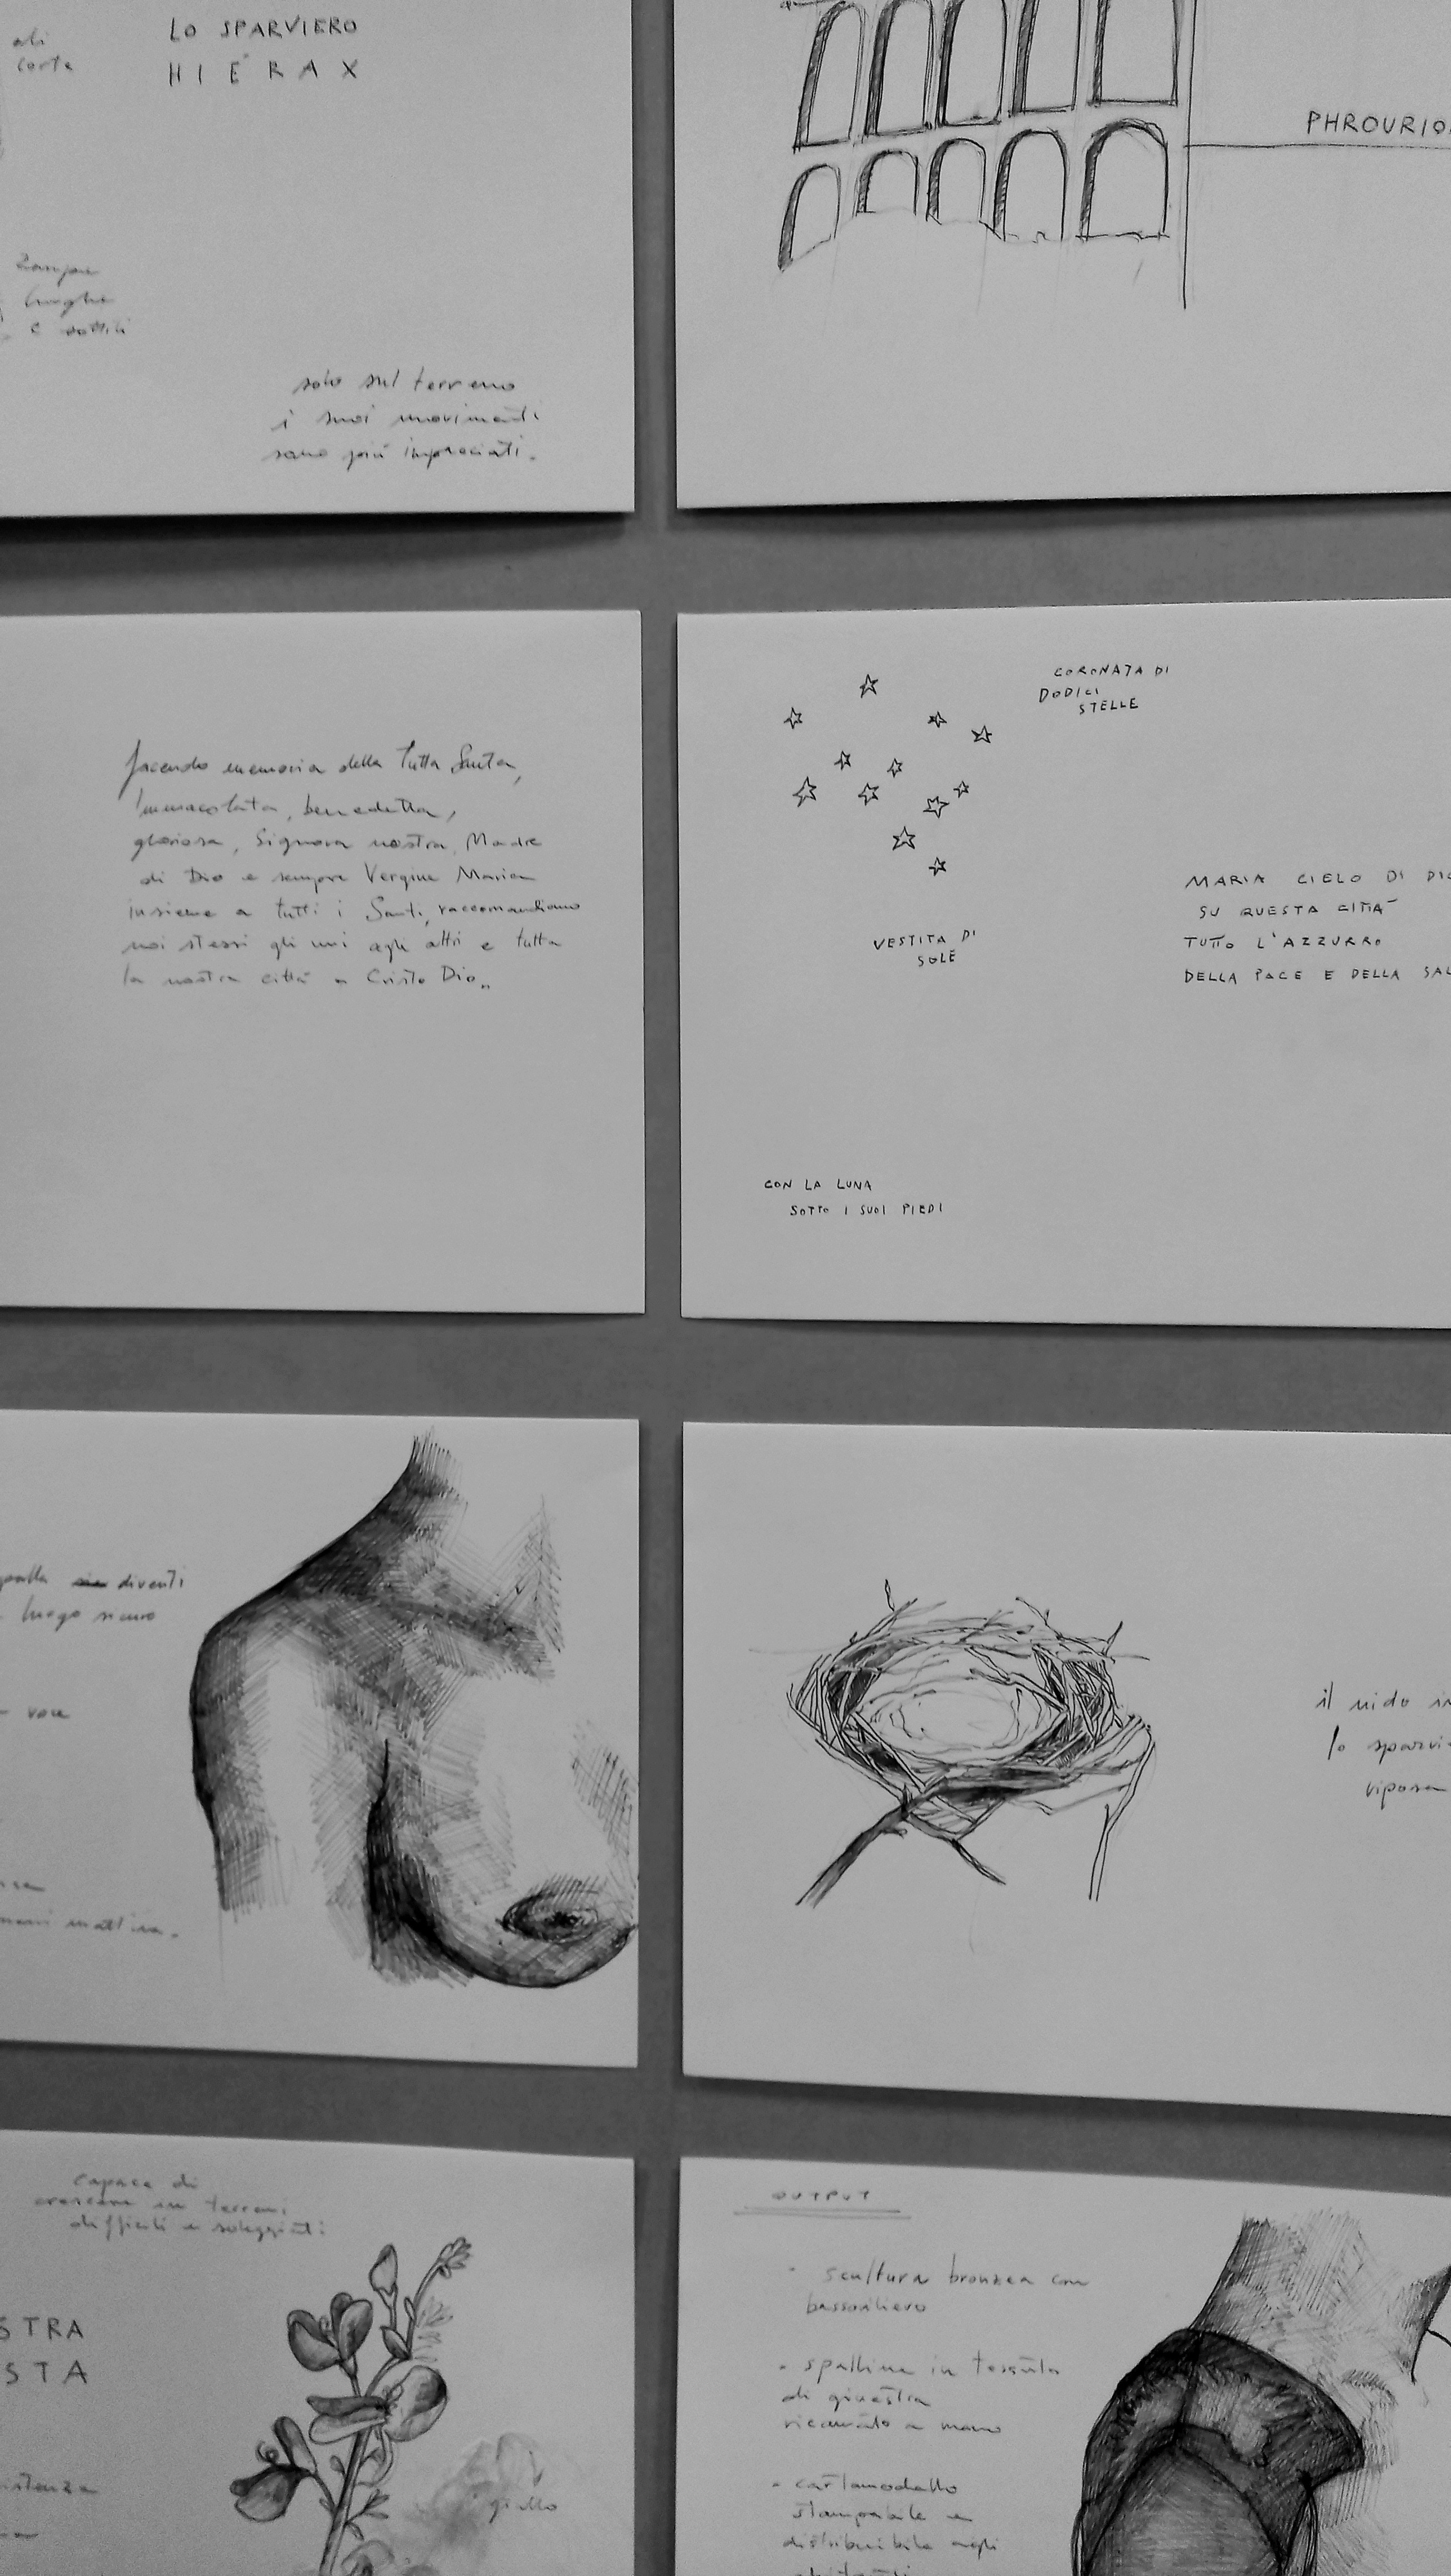 ali
corte
LO SPARVIERO
HIÉRAX
Zampe
lunghe
e sottili
solo sul terreno
i suoi movimenti
sono più impacciati.
PHROURIO
facendo memoria della Tutta Santa,
Immacolata, benedetta,
gloriosa, Signora nostra, Madre
di Dio e sempre Vergine Maria
insieme a tutti i Santi, raccomandiamo
noi stessi gli uni agli altri e tutta
la nostra città a Cristo Dio..
CORONATA DI
DODICI
STELLE
VESTITA DI
SOLE
MARIA CIELO DI DIO
SU QUESTA CITTÀ
TUTTO L'AZZURRO
DELLA PACE E DELLA SAL
CON LA LUNA
SOTTO I SUOI PIEDI
palla diventi
luogo sicuro
mattina.
il nido in
lo sparvi
riposa
capace di
crescere in terreni
difficili e soleggiati
STRA
STA
giallo
OUTPUT
- scultura bronzea con
bassorilievo
- spallina in tessuto
di ginestra
ricamato a mano
- cartamodello
stampabile e
distribuibile agli